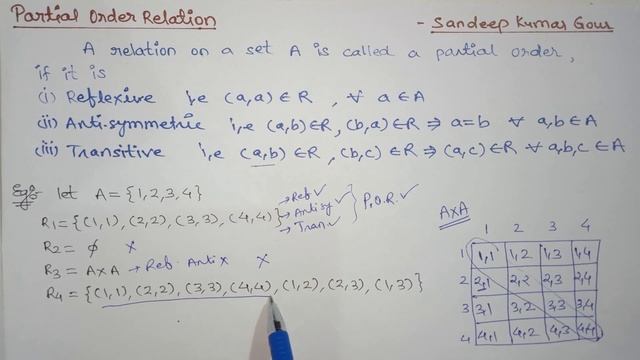 Partial Order Relation - Sandeep Kumar Gour
A relation on a set A is called a partial order,
if it is
(i) Reflexive i,e (a,a) ∈ R, ∀ a ∈ A
(ii) Anti-symmetric i,e (a,b) ∈ R, (b,a) ∈ R ⇒ a=b ∀ a,b ∈ A
(iii) Transitive i,e (a,b) ∈ R, (b,c) ∈ R ⇒ (a,c) ∈ R ∀ a,b,c ∈ A
Eg:- let A = {1,2,3,4}
R1 = {(1,1), (2,2), (3,3), (4,4)} → Ref ✓ → Antisy ✓ → Tran ✓ } P.O.R. ✓
R2 = ϕ ×
R3 = A×A → Ref. Anti × ×
R4 = {(1,1), (2,2), (3,3), (4,4), (1,2), (2,3), (1,3)}
A×A
1 2 3 4
1 1,1 1,2 1,3 1,4
2 2,1 2,2 2,3 2,4
3 3,1 3,2 3,3 3,4
4 4,1 4,2 4,3 4,4